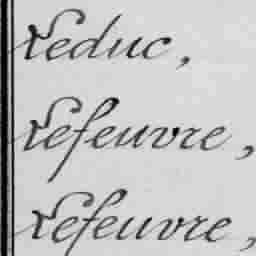 Leduc,
Lefeuvre,
Lefeuvre,